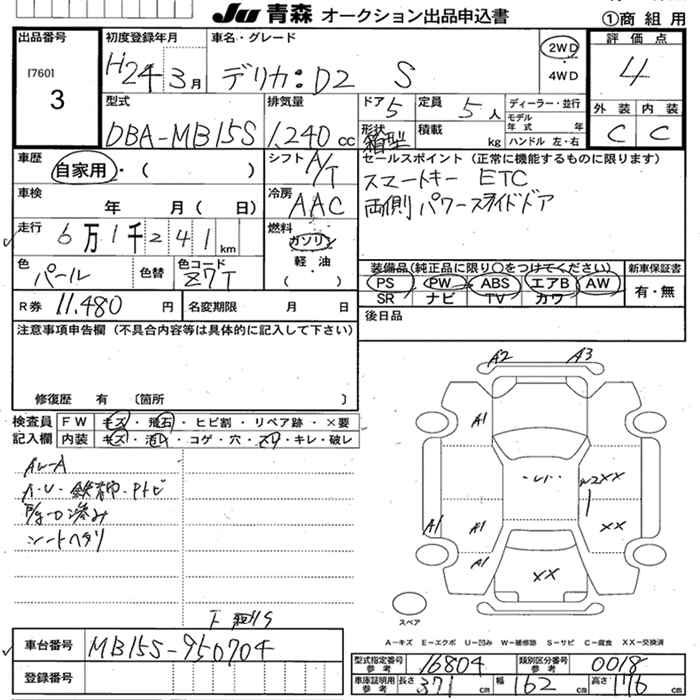 JU 青森 オークション出品申込書
①商組用
出品番号
[760]
3
初度登録年月
H24 3月
車名・グレード
デリカ:D2 S
2WD
・
4WD
評価点
4
外装 内装
C C
型式
DBA-MB15S
排気量
1,240 cc
ドア 5
定員 5人
ディーラー・並行
形状 箱型
積載 kg
モデル年式 年
ハンドル 左・右
車歴
自家用・( )
シフト A/T
セールスポイント (正常に機能するものに限ります)
スマートキー ETC
両側パワースライドドア
車検
年 月( 日)
冷房 AAC
走行
6万1千241km
燃料
ガソリン
軽・油
( )
色
パール
色替
色コード
Z7T
装備品(純正品に限り○をつけてください)
PS PW ABS エアB AW
SR ナビ TV カワ
新車保証書
有・無
R券 11,480 円
名変期限 月 日
後日品
注意事項申告欄 (不具合内容等は具体的に記入して下さい)
修復歴 有 〔箇所 〕
検査員
記入欄
FW キズ・飛石・ヒビ割・リペア跡・×要
内装 キズ・汚れ・コゲ・穴・スリ・キレ・破レ
AW-A
A・U・鉄粉・Pトビ
シートヘタリ
A2 A3
A1
W2 XX
A1 A1 XX
A1
XX
スペア
A-キズ E-エクボ U-凹み W-補修跡 S-サビ C-腐食 XX-交換済
車台番号
MB15S-950704
登録番号
型式指定番号 参考 16804
類別区分番号 参考 0018
車庫証明用 参考 長さ 371 cm 幅 162 cm 高さ 176 cm